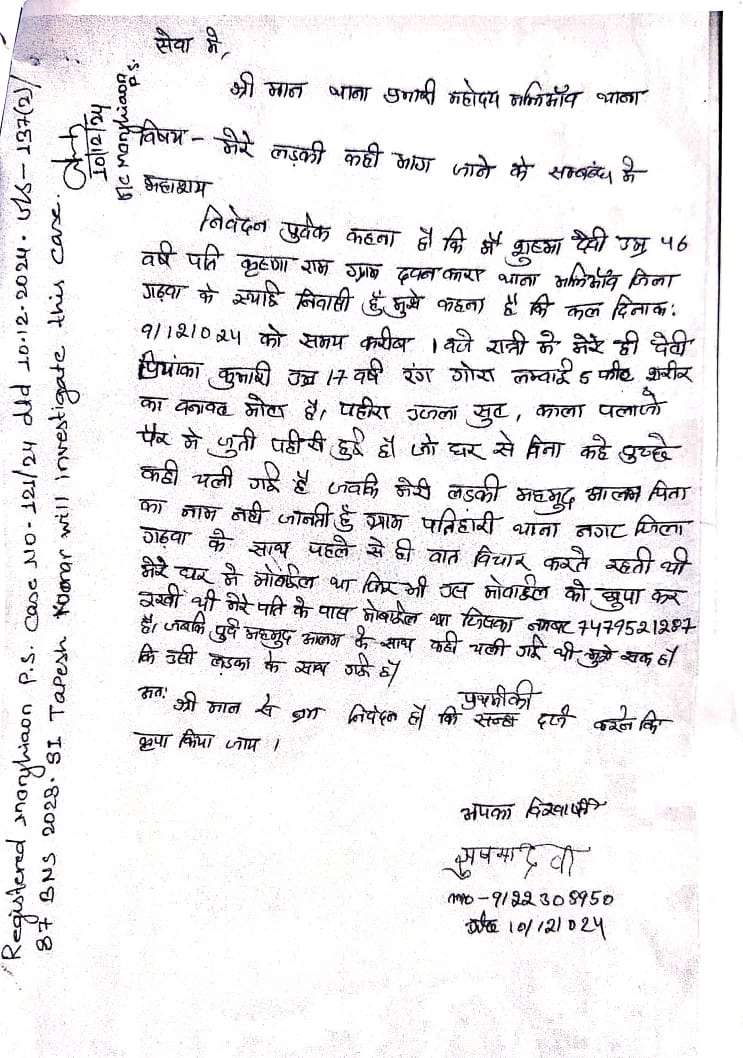 सेवा में,
श्री मान थाना प्रभारी महोदय मझिआँव थाना
विषय - मेरे लड़की कही भाग जाने के सम्बंध मे
महाशय
निवेदन पुर्वक कहना है कि मै देवी उम्र 46
वर्ष पति कृष्णा राम ग्राम दवनकारा थाना मझिआँव जिला
गढ़वा के स्थाई निवासी हुँ मुझे कहना है कि कल दिनांक:
9/12/024 को समय करीब 1 बजे रात्री मे मेरे ही बेटी
प्रियांका कुमारी उम्र 17 वर्ष रंग गोरा लम्बाई 5 फीट शरीर
का बनावट मोटा है, पहीरा उजला सुट, काला पलाजो
पैर मे जुती पहीरी हुई है। जो घर से बिना कहे पुच्छे
कही चली गई है जबकि मेरी लड़की महमुद आलम पिता
का नाम नही जानती हुँ ग्राम पतिहारी थाना नगट जिला
गढ़वा के साथ पहले से ही बात विचार करते रहती थी
मेरे घर मे मोबाईल था फिर भी उस मोबाईल को छुपा कर
रखी थी मेरे पति के पास मोबाईल था जिसका नम्बर 7479521287
है, जबकि पुर्व महमुद आलम के साथ कही चली गई थी मुझे सक है।
कि उसी लड़का के साथ गई है।
अतः श्री मान से निवेदन है कि सन्हा प्राथमीकी दर्ज करने कि
कृपा किया जाय ।
आपका विश्वाषी
सुषमा देवी
mo - 9122308950
10/12/024
Registered Manjhiaon P.S. Case NO- 121/24 dtd 10.12.2024. U/S- 137(2)/
87 BNS 2023. SI Tapesh Kumar will investigate this case.
10/12/24
O/C Manjhiaon
P.S.